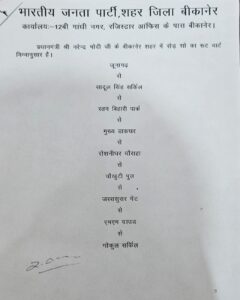 भारतीय जनता पार्टी,शहर जिला बीकानेर
कार्यालय:-12बी गांधी नगर, रजिस्टार आफिस के पास बीकानेर।
प्रधानमंत्री श्री नरेन्द्र मोदी जी के बीकानेर शहर में रोड़ शो का रूट चार्ट
निम्नानुसार है।
जूनागढ़
से
सादुल सिंह सर्किल
से
रतन बिहारी पार्क
से
मुख्य डाकघर
से
रोशनीघर चौराहा
से
चौखुटी पुल
से
जस्सूसर गेट
से
एमएम
से
गोकुल सर्किल